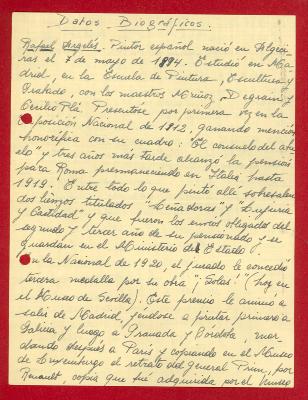 Datos Biográficos.
Rafael Argelés. Pintor español nació en Algeci-
ras el 7 de mayo de 1894. Estudió en Ma-
drid, en la Escuela de Pintura, Escultura y
Grabado, con los maestros Muñoz Degrain y
Cecilio Plá. Presentóse por primera vez en la
Exposición Nacional de 1912, ganando mención
honorífica con su cuadro: "El consuelo del abu-
elo" y tres años más tarde alcanzó la pensión
para Roma permaneciendo en Italia hasta
1919. Entre todo lo que pintó allí sobresalen
dos lienzos titulados "Leñadoras" y "Lujuria
y Castidad" y que fueron los envíos obligados del
segundo y tercer año de su pensionado y se
guardan en el Ministerio del Estado.
En la Nacional de 1920, el jurado le concedió
tercera medalla por su obra "¡Solas!" (hoy en
el Museo de Sevilla). Este premio le animó a
salir de Madrid, yéndose a pintar primero a
Galicia y luego a Granada y Córdoba, mar-
chando después a París y copiando en el Museo
de Luxemburgo el retrato del general Prim, por
Renault, copia que fué adquirida por el Museo